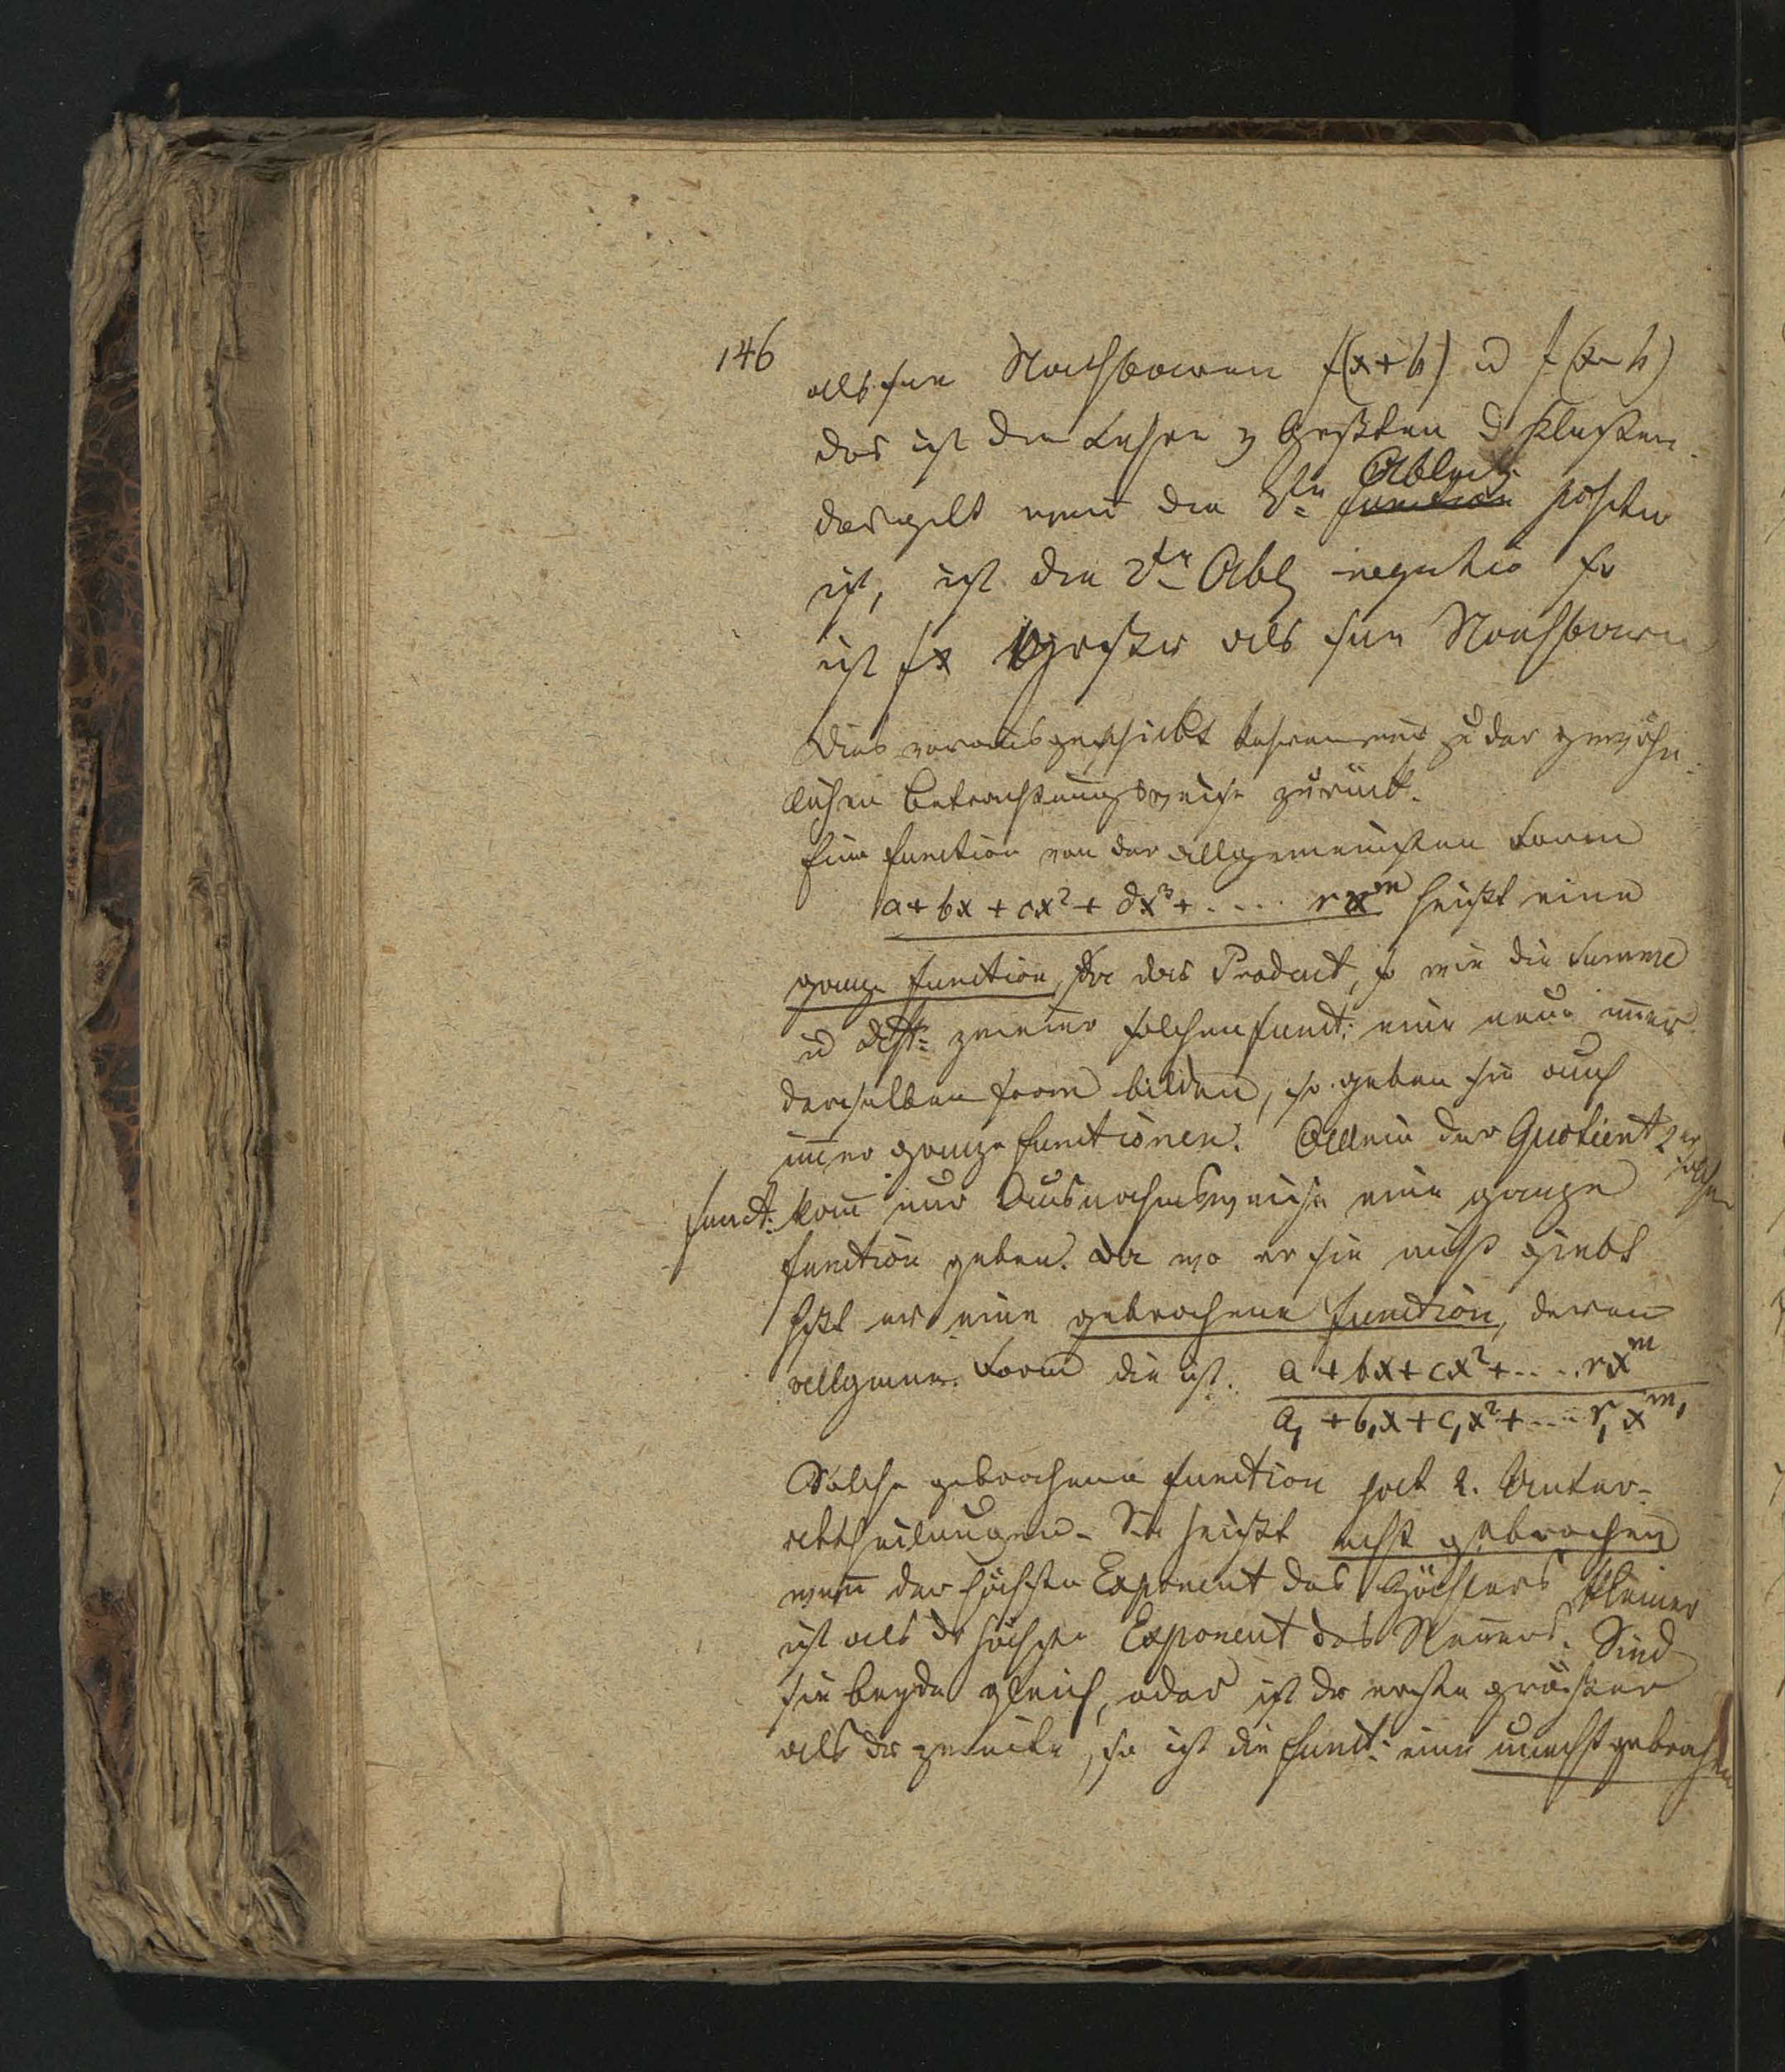 146
als seine Nachbaren f(x+h) u f(x-h)
das ist die Lehre v Größten u Kleinsten.
das gilt wenn die 2te Ableit. function positiv
ist, ist die 2te Abl negativ so
ist fx größer als seine Nachbaren
Dies vorausgeschickt kehren wir zu der gewöhn-
lichen Betrachtungsweise zurück.
Eine Function von der allgemeinsten Form
a + bx + cx² + dx³ + ..... rx^m heißt eine
ganze Function, Da das Product, so wie die Summe
u Diff: zweier solchen Funct: eine neue immer
derselben Form bilden, so geben sie auch
immer ganze Functionen. Allein der Quotient 2er solcher
Funct: kann nur Ausnahmsweise eine ganze
Function geben. Da wo er sie nicht giebt
heißt er eine gebrochene Function, deren
allgemein. Form die ist. a + bx + cx² + ..... rx^m
a, + b,x + c,x² + ..... r,x^m,
Solche gebrochene Function hat 2. Unter-
abtheilungen. Sie heißt ächt gebrochen
wenn der höchste Exponent des Zählers kleiner
ist als der höchste Exponent des Nenners. Sind
sie beyde gleich, oder ist der erste größer
als der zweite, so ist die Funct: eine unächt gebrochene